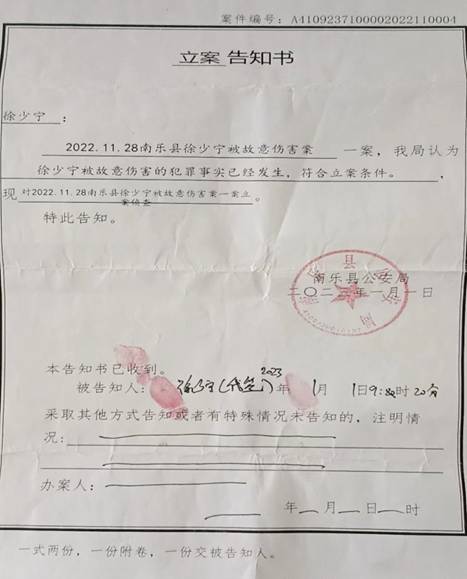 案件编号：A4109237100002022110004
立案告知书
徐少宁：
2022.11.28南乐县徐少宁被故意伤害案一案，我局认为
徐少宁被故意伤害的犯罪事实已经发生，符合立案条件。，
现对2022.11.28南乐县徐少宁被故意伤害案一案立
案侦查。
特此告知。
南乐县公安局
二〇二三年一月一日
本告知书已收到。
被告知人：徐少宁(代签)2023年1月1日9:时20分
采取其他方式告知或者有特殊情况未告知的，注明情
况：
办案人：
年 月 日 时
一式两份，一份附卷，一份交被告知人。